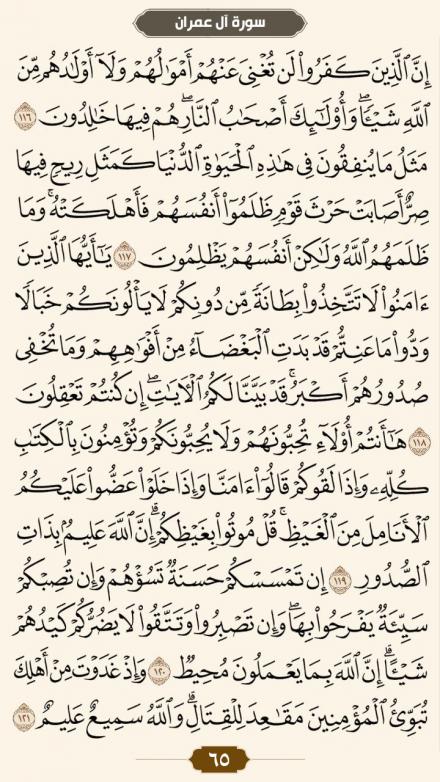 سورة آل عمران
إِنَّ ٱلَّذِينَ كَفَرُوا۟ لَن تُغْنِىَ عَنْهُمْ أَمْوَٰلُهُمْ وَلَآ أَوْلَٰدُهُم مِّنَ
ٱللَّهِ شَيْـًٔا ۖ وَأُو۟لَٰٓئِكَ أَصْحَٰبُ ٱلنَّارِ ۚ هُمْ فِيهَا خَٰلِدُونَ ١١٦
مَثَلُ مَا يُنفِقُونَ فِى هَٰذِهِ ٱلْحَيَوٰةِ ٱلدُّنْيَا كَمَثَلِ رِيحٍ فِيهَا
صِرٌّ أَصَابَتْ حَرْثَ قَوْمٍ ظَلَمُوٓا۟ أَنفُسَهُمْ فَأَهْلَكَتْهُ ۚ وَمَا
ظَلَمَهُمُ ٱللَّهُ وَلَٰكِنْ أَنفُسَهُمْ يَظْلِمُونَ ١١٧ يَٰٓأَيُّهَا ٱلَّذِينَ
ءَامَنُوا۟ لَا تَتَّخِذُوا۟ بِطَانَةً مِّن دُونِكُمْ لَا يَأْلُونَكُمْ خَبَالًا
وَدُّوا۟ مَا عَنِتُّمْ قَدْ بَدَتِ ٱلْبَغْضَآءُ مِنْ أَفْوَٰهِهِمْ وَمَا تُخْفِى
صُدُورُهُمْ أَكْبَرُ ۚ قَدْ بَيَّنَّا لَكُمُ ٱلْـَٔايَٰتِ ۖ إِن كُنتُمْ تَعْقِلُونَ
١١٨ هَٰٓأَنتُمْ أُو۟لَآءِ تُحِبُّونَهُمْ وَلَا يُحِبُّونَكُمْ وَتُؤْمِنُونَ بِٱلْكِتَٰبِ
كُلِّهِۦ وَإِذَا لَقُوكُمْ قَالُوٓا۟ ءَامَنَّا وَإِذَا خَلَوْا۟ عَضُّوا۟ عَلَيْكُمُ
ٱلْأَنَامِلَ مِنَ ٱلْغَيْظِ ۚ قُلْ مُوتُوا۟ بِغَيْظِكُمْ ۗ إِنَّ ٱللَّهَ عَلِيمٌۢ بِذَاتِ
ٱلصُّدُورِ ١١٩ إِن تَمْسَسْكُمْ حَسَنَةٌ تَسُؤْهُمْ وَإِن تُصِبْكُمْ
سَيِّئَةٌ يَفْرَحُوا۟ بِهَا ۖ وَإِن تَصْبِرُوا۟ وَتَتَّقُوا۟ لَا يَضُرُّكُمْ كَيْدُهُمْ
شَيْـًٔا ۗ إِنَّ ٱللَّهَ بِمَا يَعْمَلُونَ مُحِيطٌ ١٢٠ وَإِذْ غَدَوْتَ مِنْ أَهْلِكَ
تُبَوِّئُ ٱلْمُؤْمِنِينَ مَقَٰعِدَ لِلْقِتَالِ ۗ وَٱللَّهُ سَمِيعٌ عَلِيمٌ ١٢١
٦٥